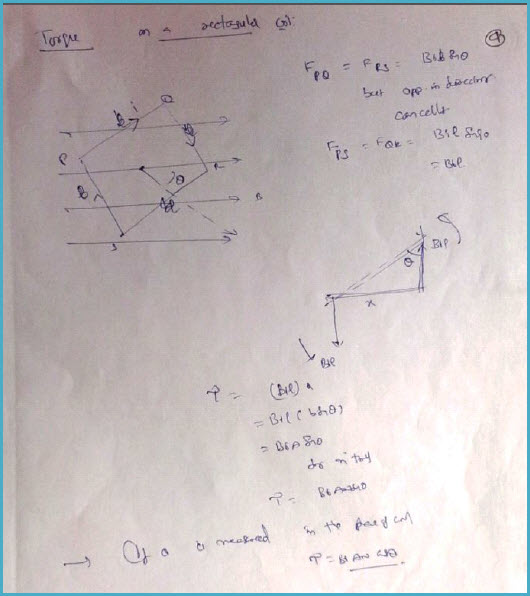 Torque on a rectangular coil
F_PQ = F_RS = Bib Sinθ
but opp. in direction
cancells
F_PS = F_QR = Bil Sin90
= Bil
Q
i
P
R
θ
B
S
θ
Bil
x
Bil
τ = (Bil) x
= Bil (b Sinθ)
= BiA Sinθ
for n turns
τ = BiAn Sinθ
→ If θ is measured in the plane of coil
τ = BiAN cosθ